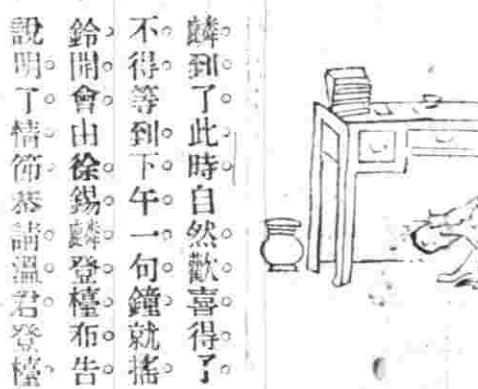 麟到了此時自然歡喜得了
不得等到下午一句鐘就搖
鈴開會由徐錫麟登檯布告
說明了情節恭請溫君登檯